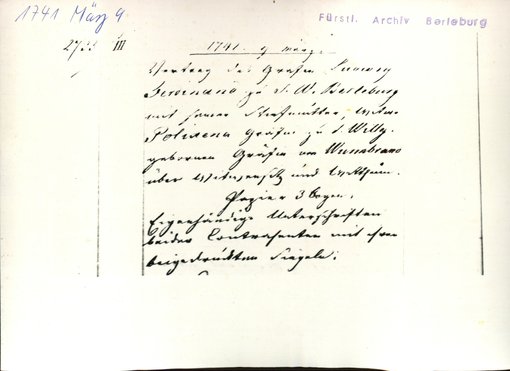 1741 März 9
Fürstl. Archiv Berleburg
2722 III
1741. 9 März.
Vertrag des Grafen Ludwig
Ferdinand zu S. W. Berleburg
mit seiner Stiefmutter,
Polixena Gräfin zu S. Wittg.
geborenen Gräfin von Wurmbrand
über Witwensitz und Witthum.
Papier 3 Bogen.
Eigenhändige Unterschriften
beider Contrahenten mit ihren
beigedrückten Siegeln.